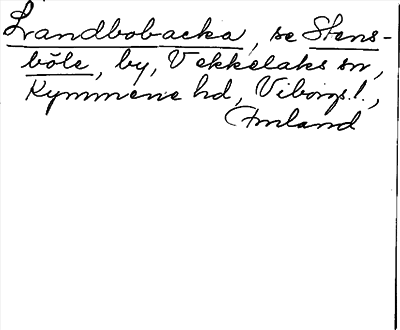 Landbobacka, se Stens-
böle, by, Vekkelaks sn,
Kymmene hd, Viborgs l.,
Finland